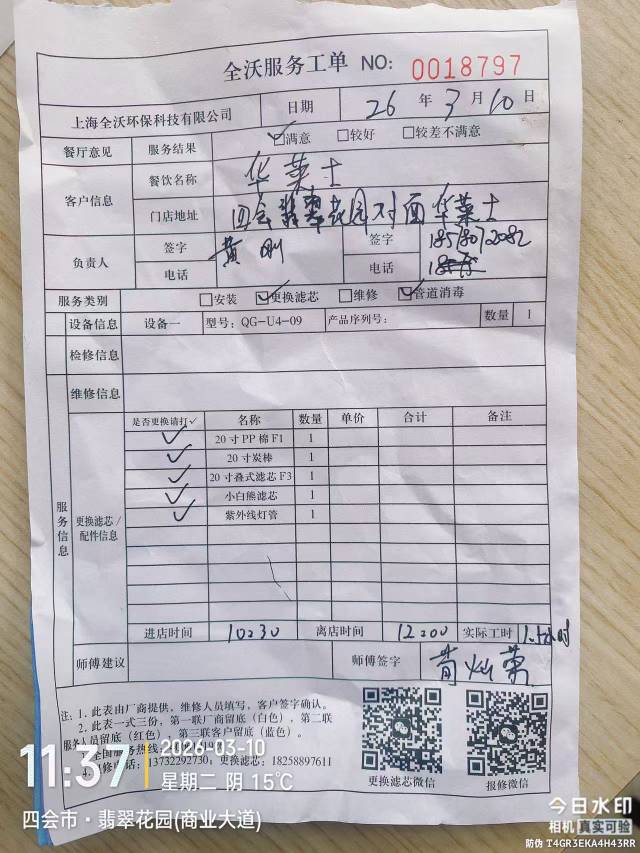 全沃服务工单 NO: 0018797
上海全沃环保科技有限公司 日期 26 年 3 月 10 日
餐厅意见 服务结果 ☑满意 □较好 □较差不满意
客户信息 餐饮名称 华莱士
门店地址 四会翡翠花园对面华莱士
负责人 签字 黄刚 签字 18578072082
电话 电话
服务类别 □安装 ☑更换滤芯 □维修 ☑管道消毒
设备信息 设备一 型号: QG-U4-09 产品序列号: 数量 1
检修信息
维修信息
服务信息
更换滤芯/配件信息
是否更换请打√ 名称 数量 单价 合计 备注
✓ 20寸PP棉F1 1
✓ 20寸炭棒 1
✓ 20寸叠式滤芯F3 1
✓ 小白熊滤芯 1
✓ 紫外线灯管 1
进店时间 10:30 离店时间 12:00 实际工时
师傅建议 师傅签字
注: 1. 此表由厂商提供, 维修人员填写, 客户签字确认。
2. 此表一式三份, 第一联厂商留底(白色), 第二联
服务人员留底(红色), 第三联客户留底(蓝色)。
全国服务热线
电话: 13732292730, 更换滤芯: 18258897611
更换滤芯微信 报修微信
11:37 2026-03-10
星期二 阴 15℃
四会市·翡翠花园(商业大道)
今日水印
相机 真实可验
防伪 T4GR3EKA4H43RR